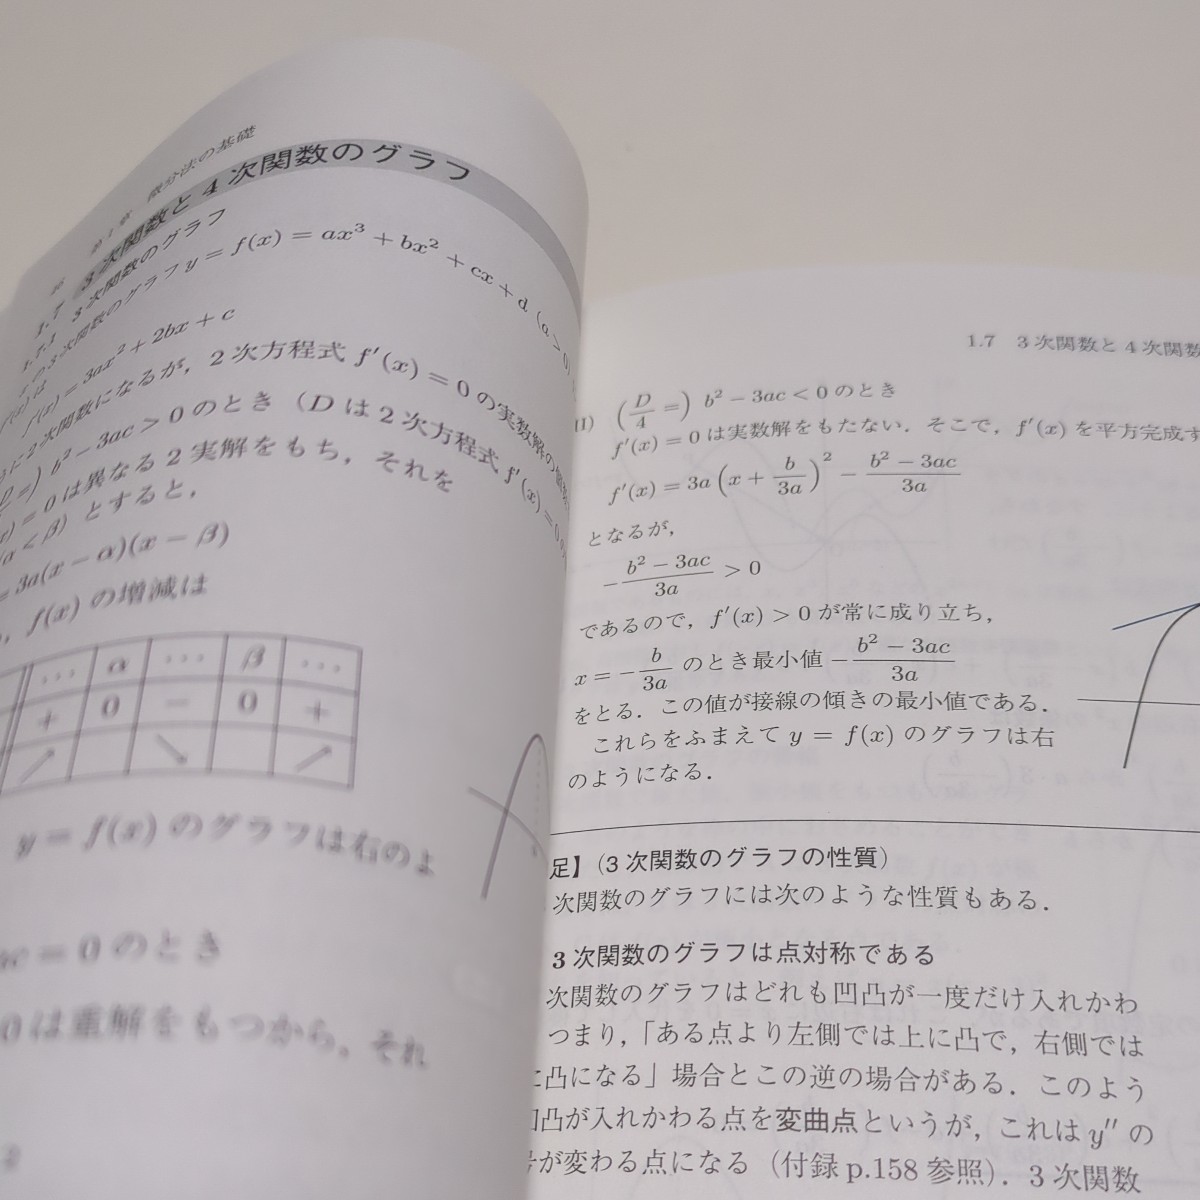 第1章 微分法の基礎
1.7 3次関数と4次関数のグラフ
1.7.1 3次関数のグラフ
の3次関数のグラフ y = f(x) = ax³ + bx² + cx + d (a > 0)
f'(x) は
f'(x) = 3ax² + 2bx + c
に2次関数になるが，2次方程式 f'(x) = 0 の実数解の個数
b² − 3ac > 0 のとき（D は2次方程式 f'(x) = 0 の
= 0 は異なる2実解をもち，それを
(α < β) とすると，
= 3a(x − α)(x − β)
，f(x) の増減は
⋯ α ⋯ β ⋯
+ 0 − 0 +
↗ ↘ ↗
y = f(x) のグラフは右のよ
ac = 0 のとき
0 は重解をもつから，それ
1.7 3次関数と4次関数
(D/4 =) b² − 3ac < 0 のとき
f'(x) = 0 は実数解をもたない．そこで，f'(x) を平方完成す
f'(x) = 3a(x + b/3a)² − (b² − 3ac)/3a
となるが，
−(b² − 3ac)/3a > 0
であるので，f'(x) > 0 が常に成り立ち，
x = −b/3a のとき最小値 −(b² − 3ac)/3a
をとる．この値が接線の傾きの最小値である．
これらをふまえて y = f(x) のグラフは右
のようになる．
足】（3次関数のグラフの性質）
次関数のグラフには次のような性質もある．
3次関数のグラフは点対称である
次関数のグラフはどれも凹凸が一度だけ入れかわ
つまり，「ある点より左側では上に凸で，右側では
に凸になる」場合とこの逆の場合がある．このよう
凹凸が入れかわる点を変曲点というが，これは y'' の
が変わる点になる（付録 p.158 参照）．3次関数